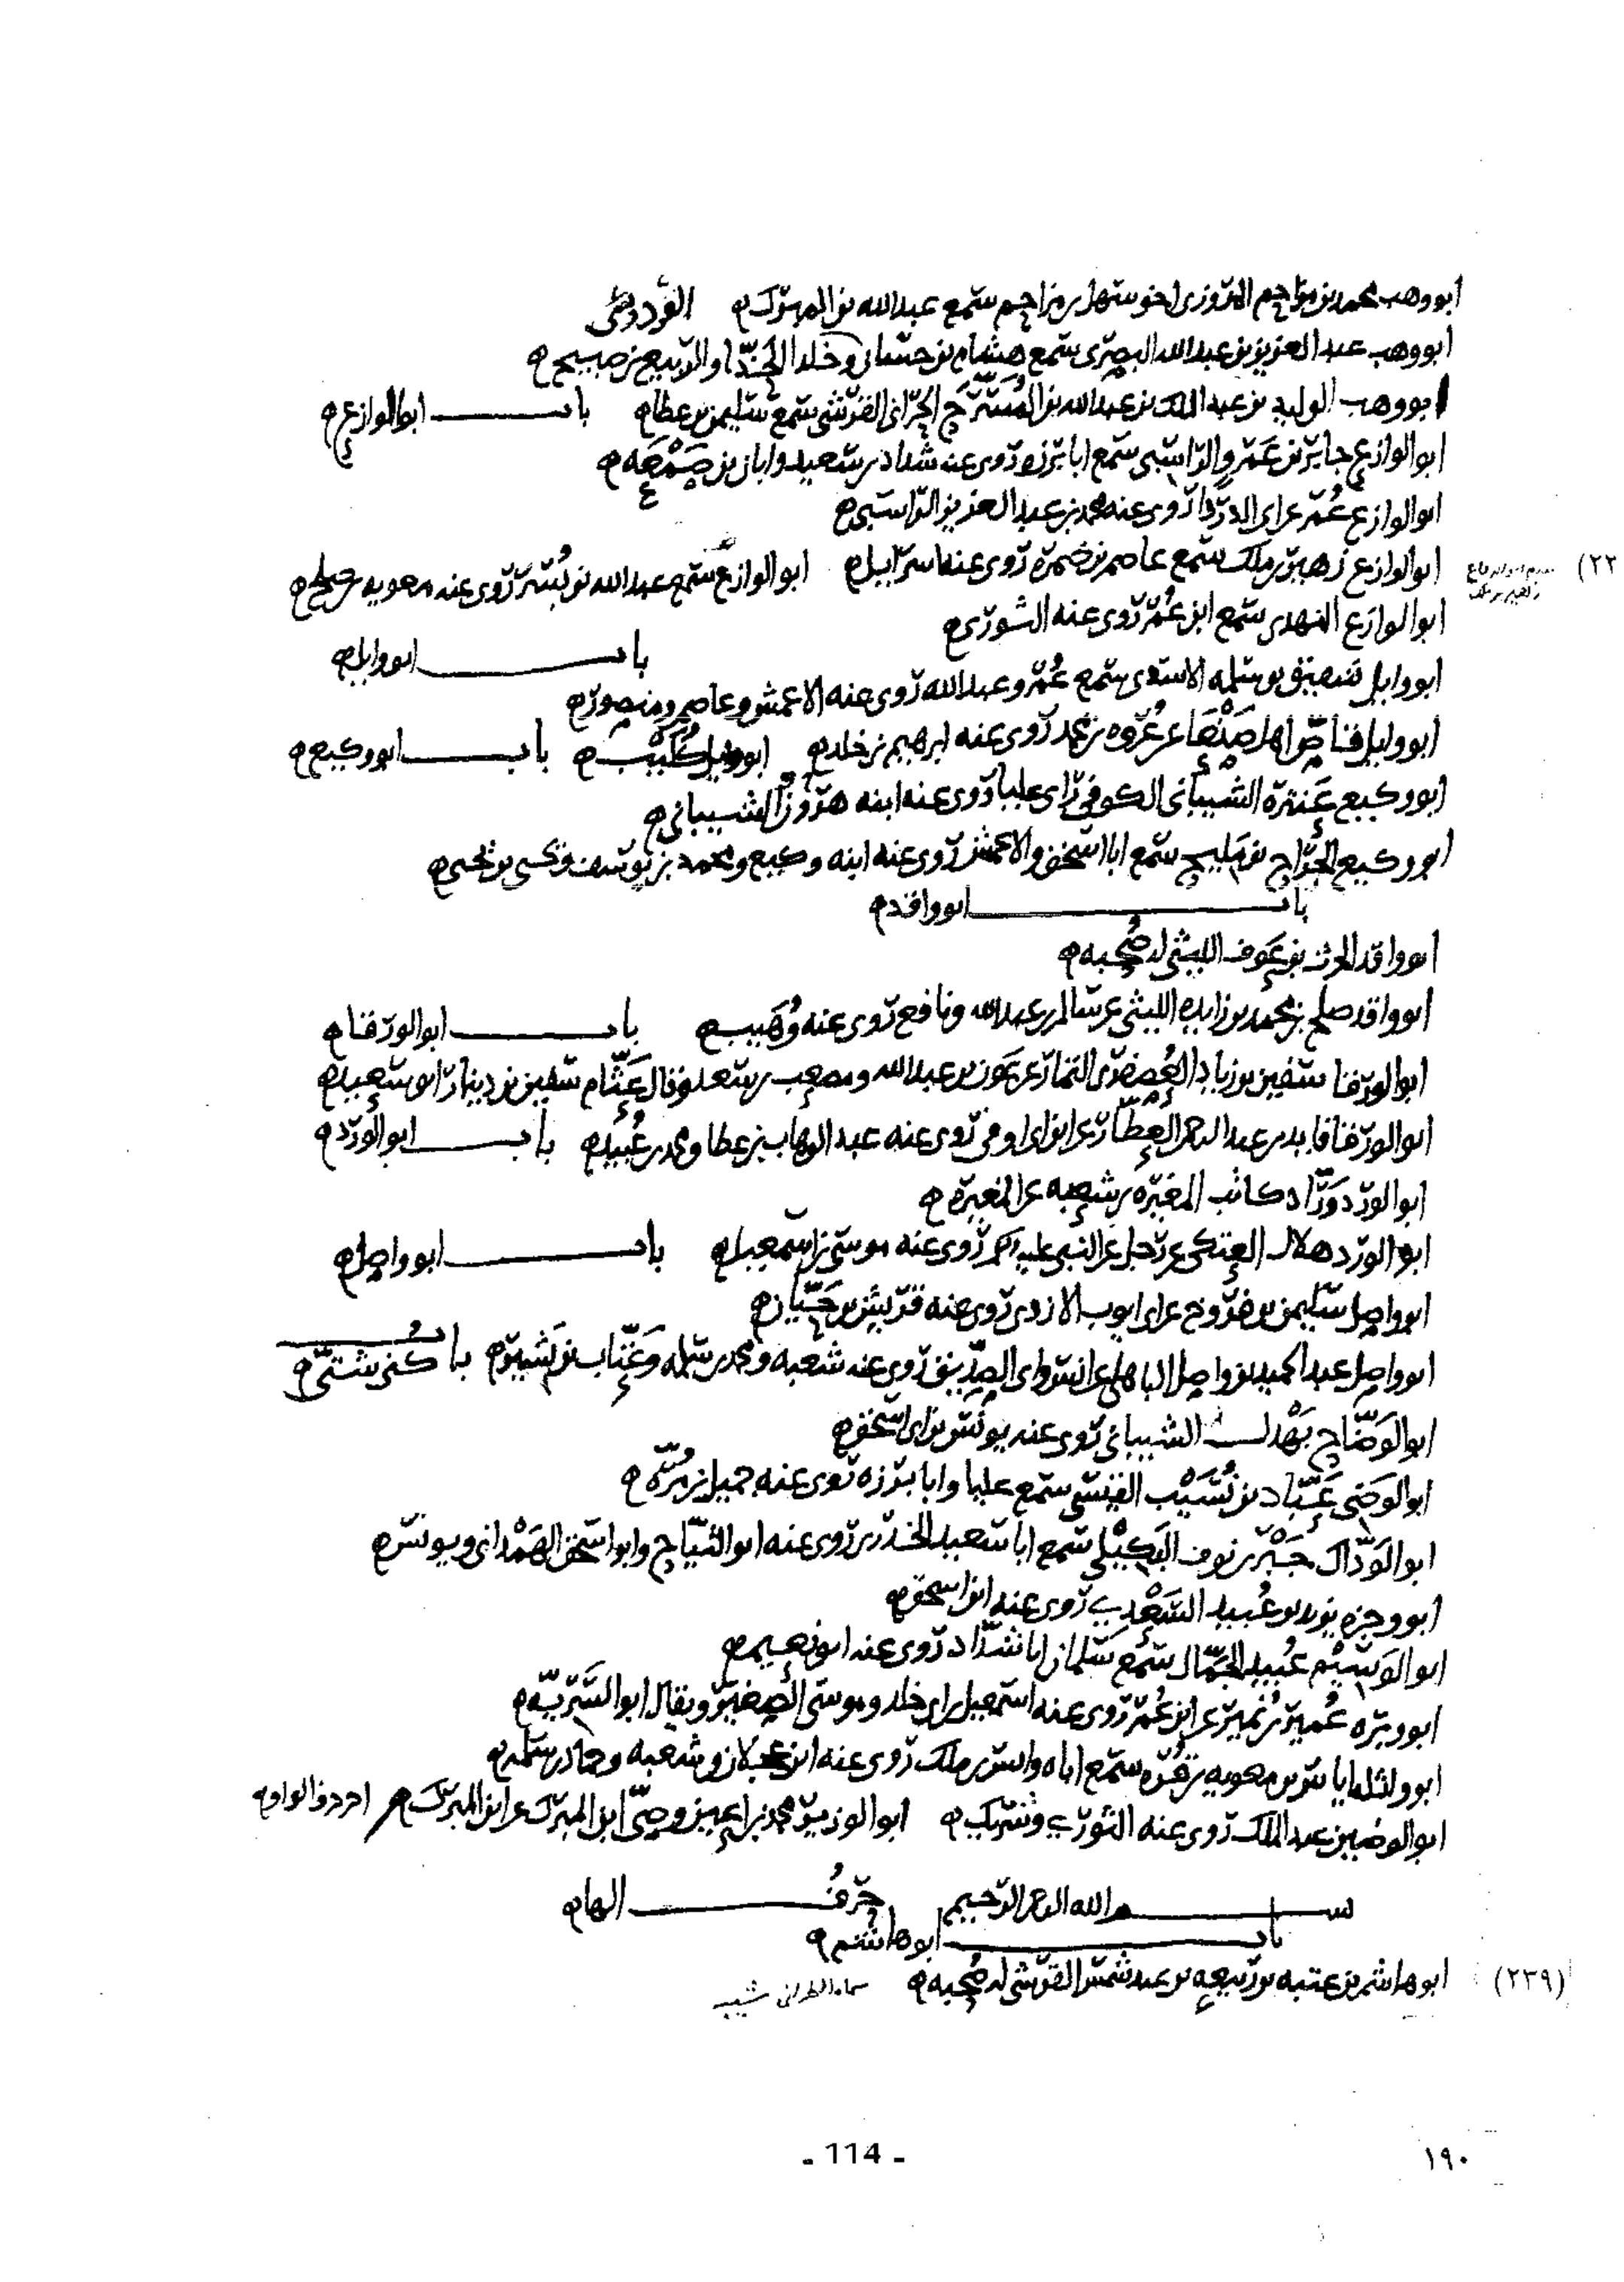 ابو وهب محمد بن مزاحم المروزى اخو سهل بن مزاحم سمع عبد الله بن المبرك ه
ابو وهب عبد العزيز بن عبد الله البصرى سمع هشام بن حسان وخلد الحذا والربيع بن صبيح ه
ابو وهب الوليد بن عبد الملك بن عبد الله بن المسرح الحرانى القرشى سمع سليمن بن عطا ه باب ابو الوازع ه
ابو الوازع جابر بن عمرو الراسبى سمع ابا برزه روى عنه شداد بن سعيد وابان بن صمعه ه
ابو الوازع عمر عن ابى الدردا روى عنه محمد بن عبد العزيز الراسبى ه
ابو الوازع زهير بن ملك سمع عاصم بن ضمره روى عنه اسرايل ه ابو الوازع سمع عبد الله بن بسر روى عنه معويه بن صلح ه
ابو الوازع النهدى سمع ابن عمر روى عنه الثورى ه
باب ابو وايل ه
ابو وايل شقيق بن سلمه الاسدى سمع عمر وعبد الله روى عنه الاعمش وعاصم ومنصور ه
ابو وايل قاص اهل صنعا عن عروه بن محمد روى عنه ابرهيم بن خلد ه ابو وايل كليب ه باب ابو وكيع ه
ابو وكيع عنتره الشيبانى الكوفى راى عليا روى عنه ابنه هرون الشيبانى ه
ابو وكيع الجراح بن مليح سمع ابا اسحق والاعمش روى عنه ابنه وكيع ومحمد بن يوسف ويحيى بن يحيى ه
باب ابو واقد ه
ابو واقد الحرث بن عوف الليثى له صحبه ه
ابو واقد صلح بن محمد بن زايده الليثى عن سالم بن عبد الله ونافع روى عنه وهيب ه باب ابو الورقا ه
ابو الورقا سفين بن زياد العصفرى التمار عن عون بن عبد الله ومصعب بن سعد وقال عثام سفين بن دينار ابو سعيد ه
ابو الورقا فايد بن عبد الرحمن العطار عن ابن ابى اوفى روى عنه عبد الوهاب بن عطا ومحمد بن عبيد ه باب ابو الورد ه
ابو الورد وراد كاتب المغيره بن شعبه عن المغيره ه
ابو الورد هلال العتكى عن رجل عن النبى عليه السلم روى عنه موسى بن اسمعيل ه باب ابو واصل ه
ابو واصل سليمن بن فروخ عن ابى ايوب الازدى روى عنه قريش بن حيان ه
ابو واصل عبد الحميد بن واصل الباهلى عن انس وابى الصديق روى عنه شعبه ومحمد بن سلمه وعتاب بن بشير ه باب كنى شتى ه
ابو الوضاح بهدله الشيبانى روى عنه يونس بن ابى اسحق ه
ابو الوضى عباد بن نسيب القيسى سمع عليا وابا برزه روى عنه جميل بن مره ه
ابو الوداك جبر بن نوف البكيلى سمع ابا سعيد الخدرى روى عنه ابو التياح وابو اسحق الهمدانى ويونس ه
ابو وجزه يزيد بن عبيد السعدى روى عنه ابن اسحق ه
ابو الوسيم عبيد الجمال سمع سلمان ابا شداد روى عنه ابو نعيم ه
ابو وبره عمير بن نمير عن ابن عمر روى عنه اسمعيل بن ابى خلد وموسى الصغير ويقال ابو السريه ه
ابو واثله اياس بن معويه بن قره سمع اباه وانس بن ملك روى عنه ابن عجلان وشعبه وحماد بن سلمه ه
ابو الوضين عبد الملك روى عنه الثورى وشريك ه ابو الوزير محمد بن اعين وصى ابن المبرك عن ابن المبرك ه اخر ذ الواو ه
بسم الله الرحمن الرحيم حرف الها ه
باب ابو هاشم ه
ابو هاشم بن عتبه بن ربيعه بن عبد شمس القرشى له صحبه ه سماه الطبرانى شيبه
(٢٣٩)
- 114 -
١٩٠